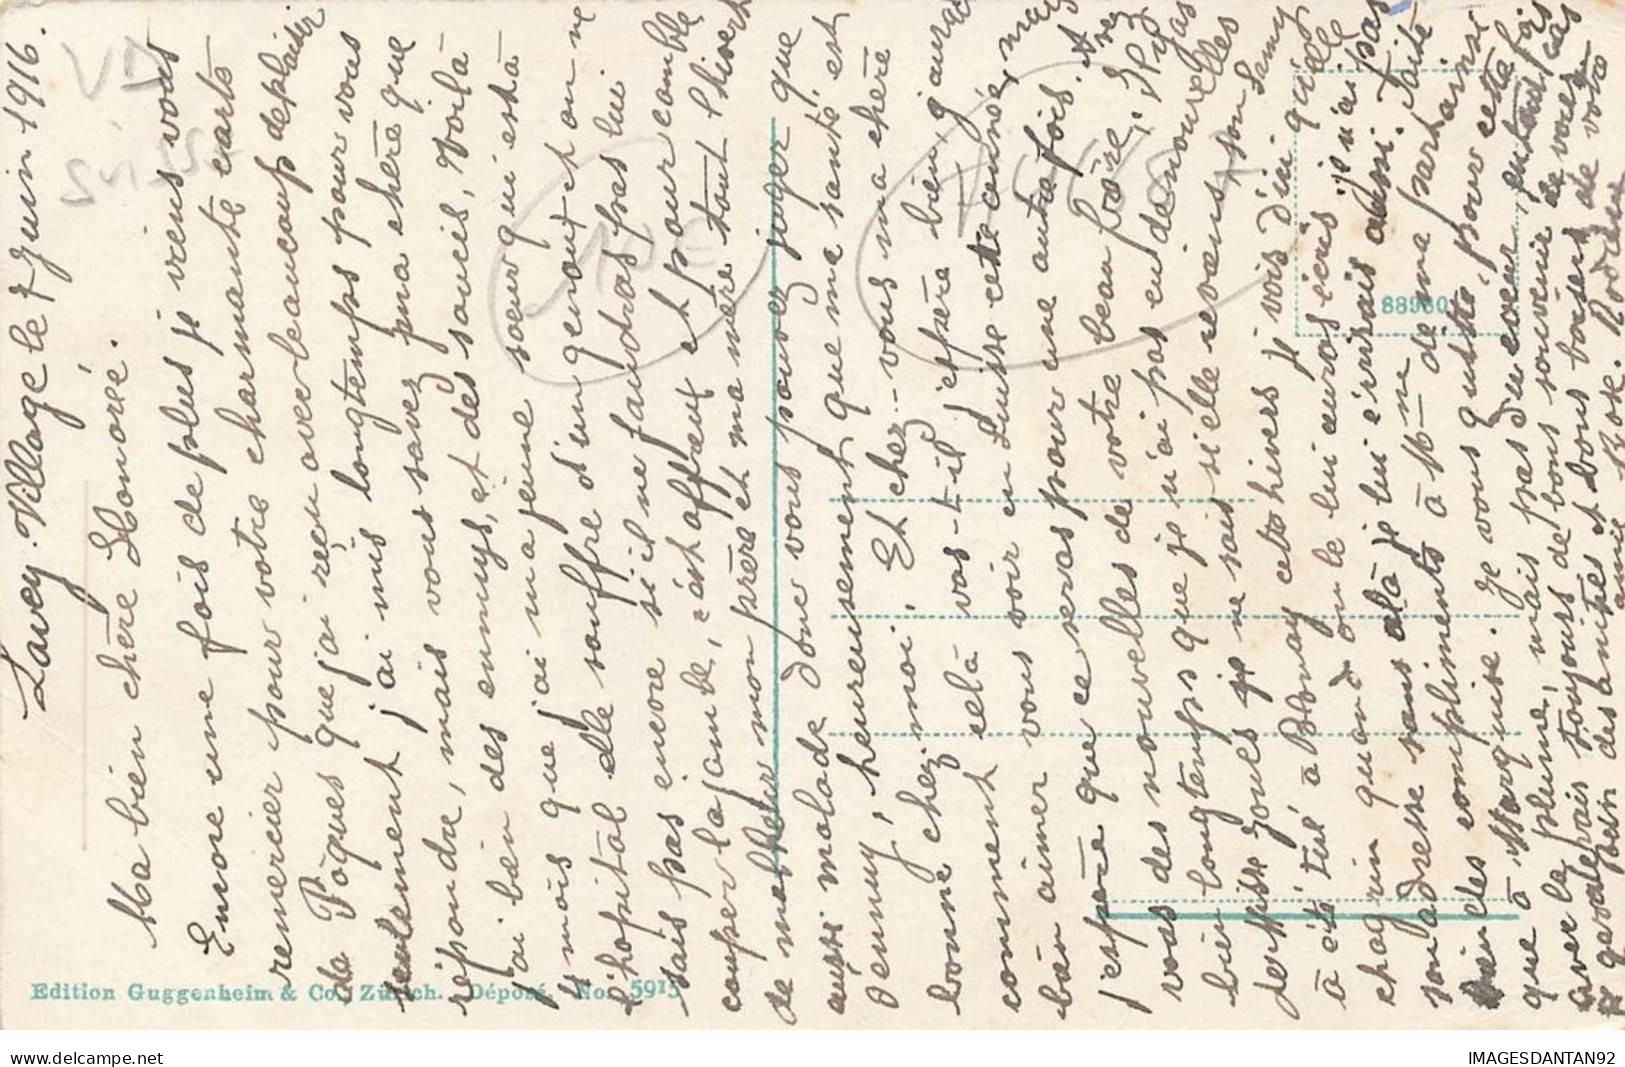 Lavey-Village le 7 Juin 1916.
Ma bien chère Honorée.
Encore une fois de plus je viens vous
remercier pour votre charmante carte
de Pâques que j'ai reçu avec beaucoup de plaisir
seulement j'ai mis longtemps pour vous
répondre, mais vous savez ma chère que
j'ai bien des ennuys, et des soucis, Voilà
4 mois que j'ai ma jeune soeur qui est à
l'hôpital elle souffre d'un genoux et on ne
sais pas encore si il ne faudras pas lui
couper la jambe, c'est affreux et pour comble
de malheur mon père et ma mère tout l'hivert
aussi malade donc vous pouvez juger que
d'ennuy, heureusement que me santé est
bonne chez moi. Et chez-vous ma chère
comment celà vas-t-il j'espère bien, j'aurai
bien aimer vous voir en Suisse cette année, mais
j'espère que ce seras pour une autre fois. Avez
vous des nouvelles de votre beau frère,
bien longtemps que je n'ai pas eu de nouvelles
je ne sais si elle revains, son
à été tué à cet hivers je vois d'ici qu'elle
chagrin quand on le lui auras écris je n'ai pas
son adresse sans celà je lui écrirais aussi. Faite
bien des compliments à Mme de ma part ainsi
que à Marquise. Je vous quitte, pour cette fois
avec la plume, mais pas du coeur,
garderais toujours de bons souvenir de vous
bien des amitiés et bons baisers de votre
amie Rose. Rodieu
88960
Edition Guggenheim & Co., Zürich. Déposé. No. 5915
delcampe.net
IMAGESDANTAN92